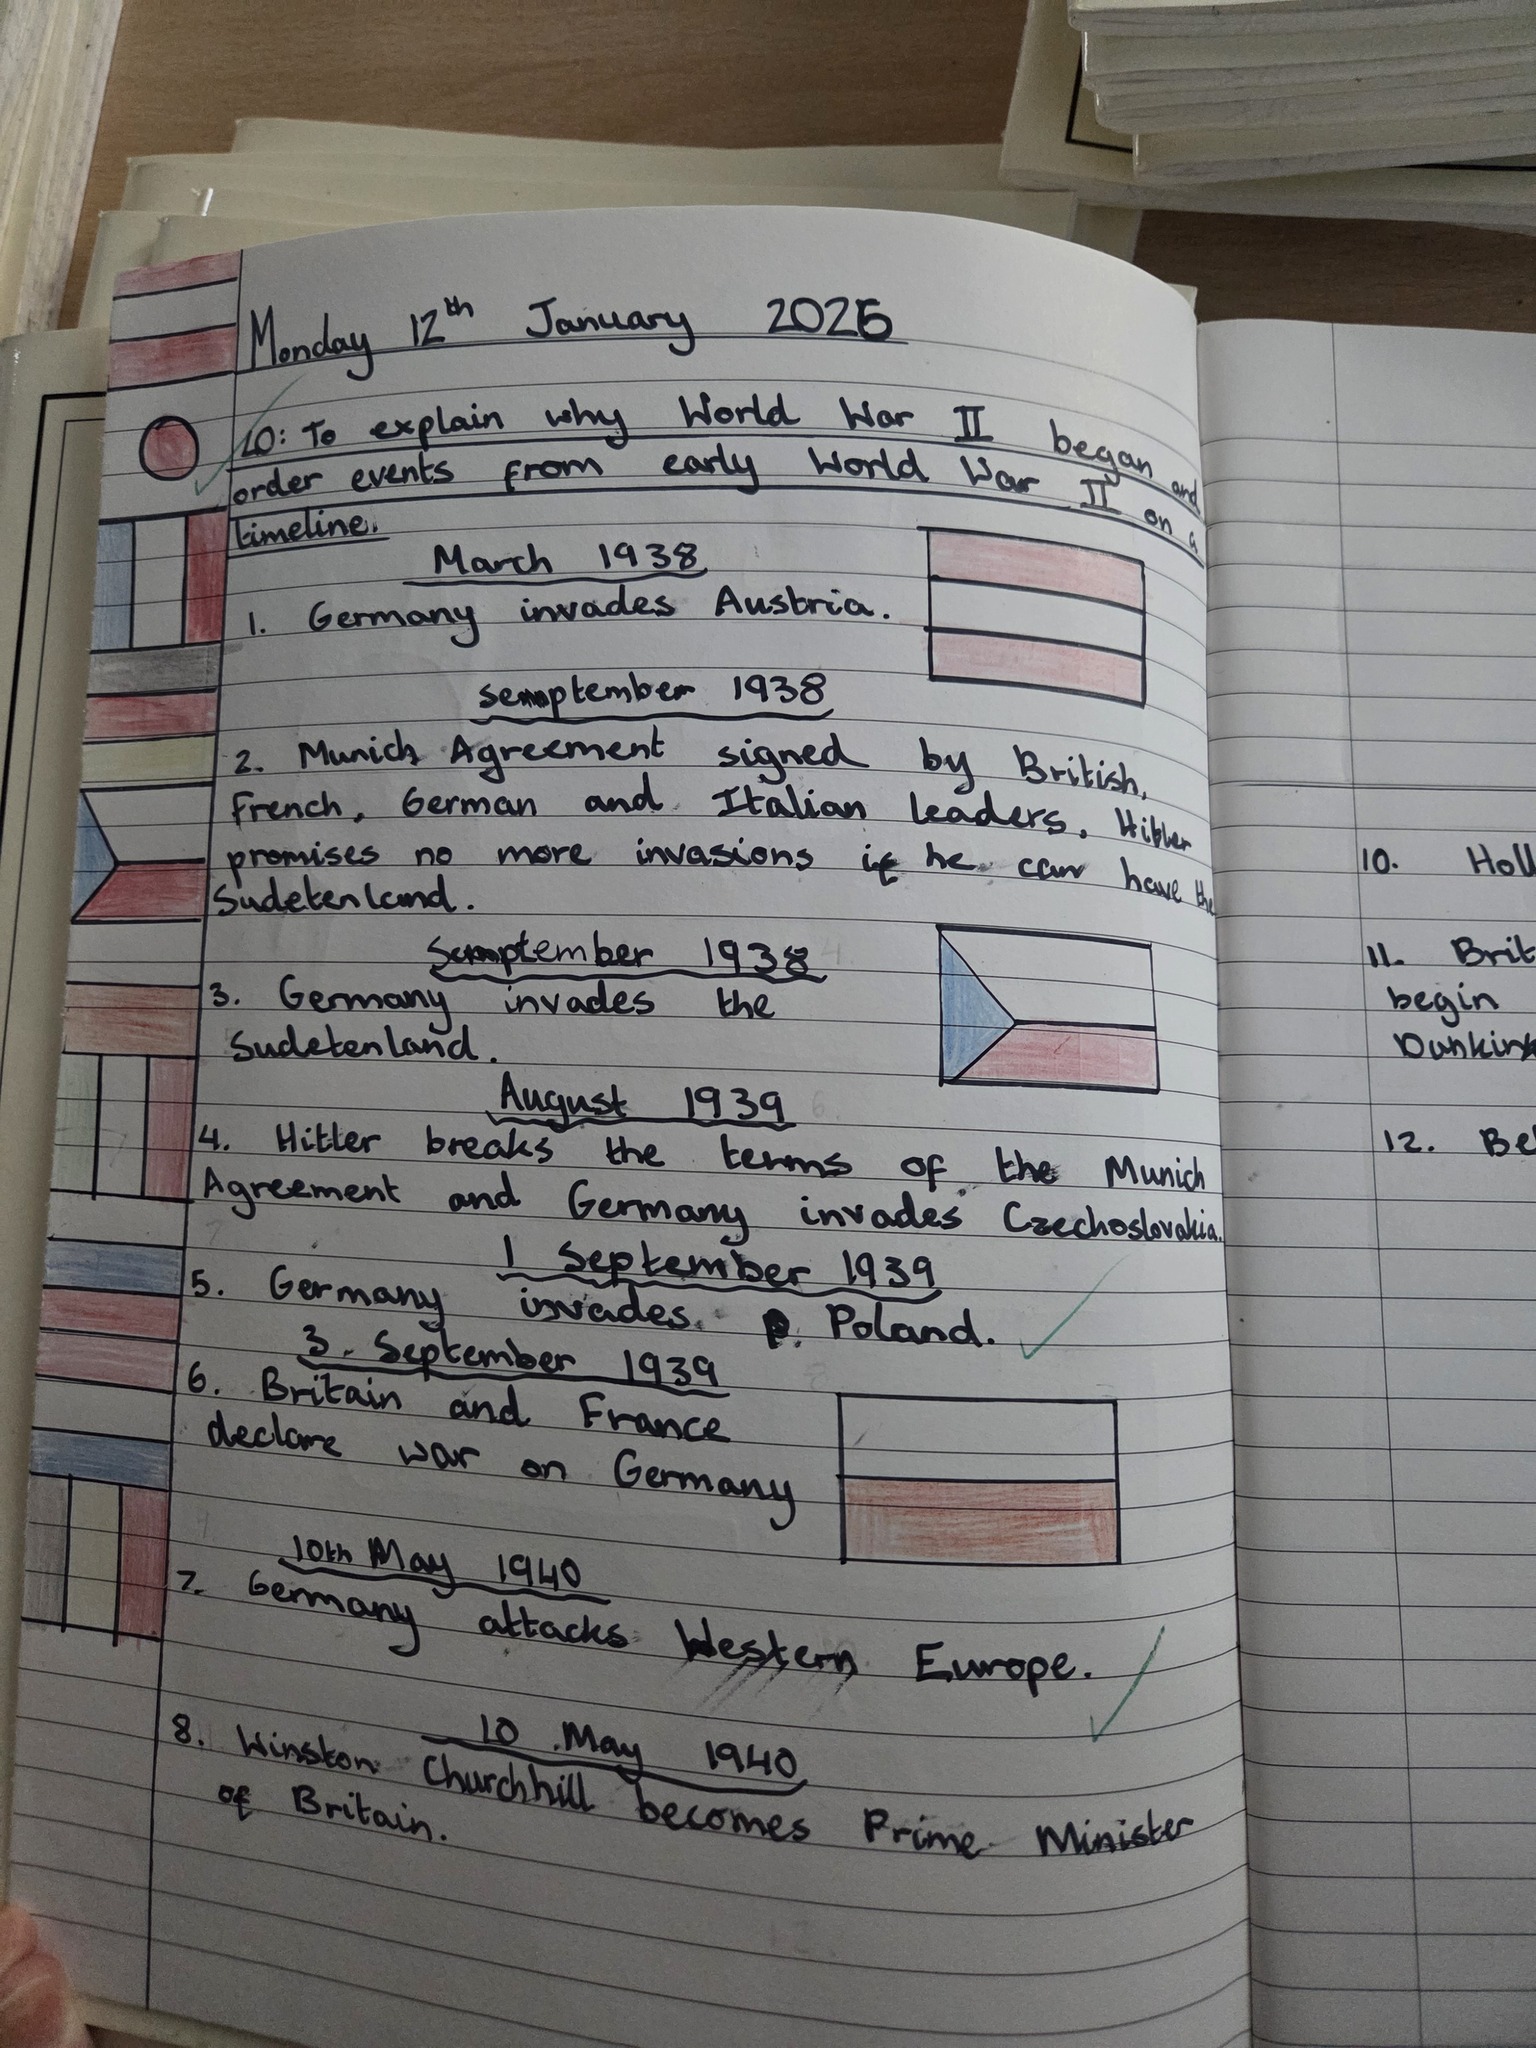 Monday 12th January 2026
LO: To explain why World War II began and
order events from early World War II on a
timeline.
March 1938
1. Germany invades Austria.
September 1938
2. Munich Agreement signed by British,
French, German and Italian leaders. Hitler
promises no more invasions if he can have the
Sudetenland.
September 1938
3. Germany invades the
Sudetenland.
August 1939
4. Hitler breaks the terms of the Munich
Agreement and Germany invades Czechoslovakia.
1 September 1939
5. Germany invades Poland.
3. September 1939
6. Britain and France
declare war on Germany
10th May 1940
7. Germany attacks Western Europe.
10 May 1940
8. Winston Churchhill becomes Prime Minister
of Britain.
10. Holl
11. Brit
begin
Dunkirk
12. Bel